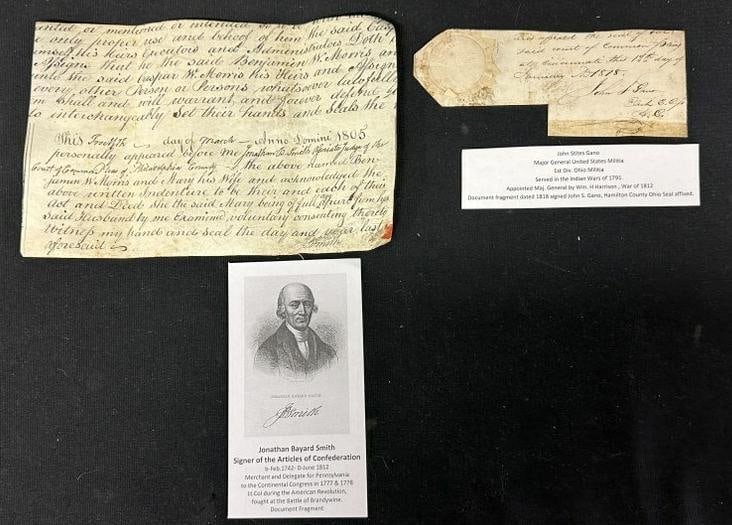 or mentioned or intended
only proper use and behoof of him the said
himself His Heirs Executors and Administrators Doth
Assigns that he the said Benjamin W. Morris and
unto the said Caspar W. Morris his Heirs and Assigns
every other Person or Persons whatsoever lawfully
shall and will warrant, and forever defend
to interchangeably set their hands and seals the
This Twelfth day of March Anno Domini 1805
personally appeared before me Jonathan B. Smith Associate Judge of the
Court of Common Pleas of Philadelphia County the above named Ben-
jamin W. Morris and Mary his Wife and acknowledged the
above written Indenture to be their and each of their
Act and Deed She the said Mary being of full Age &
said Husband by me Examined, voluntary consenting thereto
Witness my hand and seal the day and year last
aforesaid
JBSmith
the seal of
said court of Common pleas
at Cincinnati this 12th day of
January 1818.
John S Gano
John Stites Gano
Major General United States Militia
1st Div. Ohio Militia
Served in the Indian Wars of 1791
Appointed Maj. General by Wm. H Harrison , War of 1812
Document fragment dated 1818 signed John S. Gano, Hamilton County Ohio Seal affixed.
JONATHAN BAYARD SMITH
JBSmith
Jonathan Bayard Smith
Signer of the Articles of Confederation
b-Feb.1742- D-June 1812
Merchant and Delegate for Pennsylvania
to the Continental Congress in 1777 & 1778
Lt.Col during the American Revolution,
fought at the Battle of Brandywine.
Document Fragment